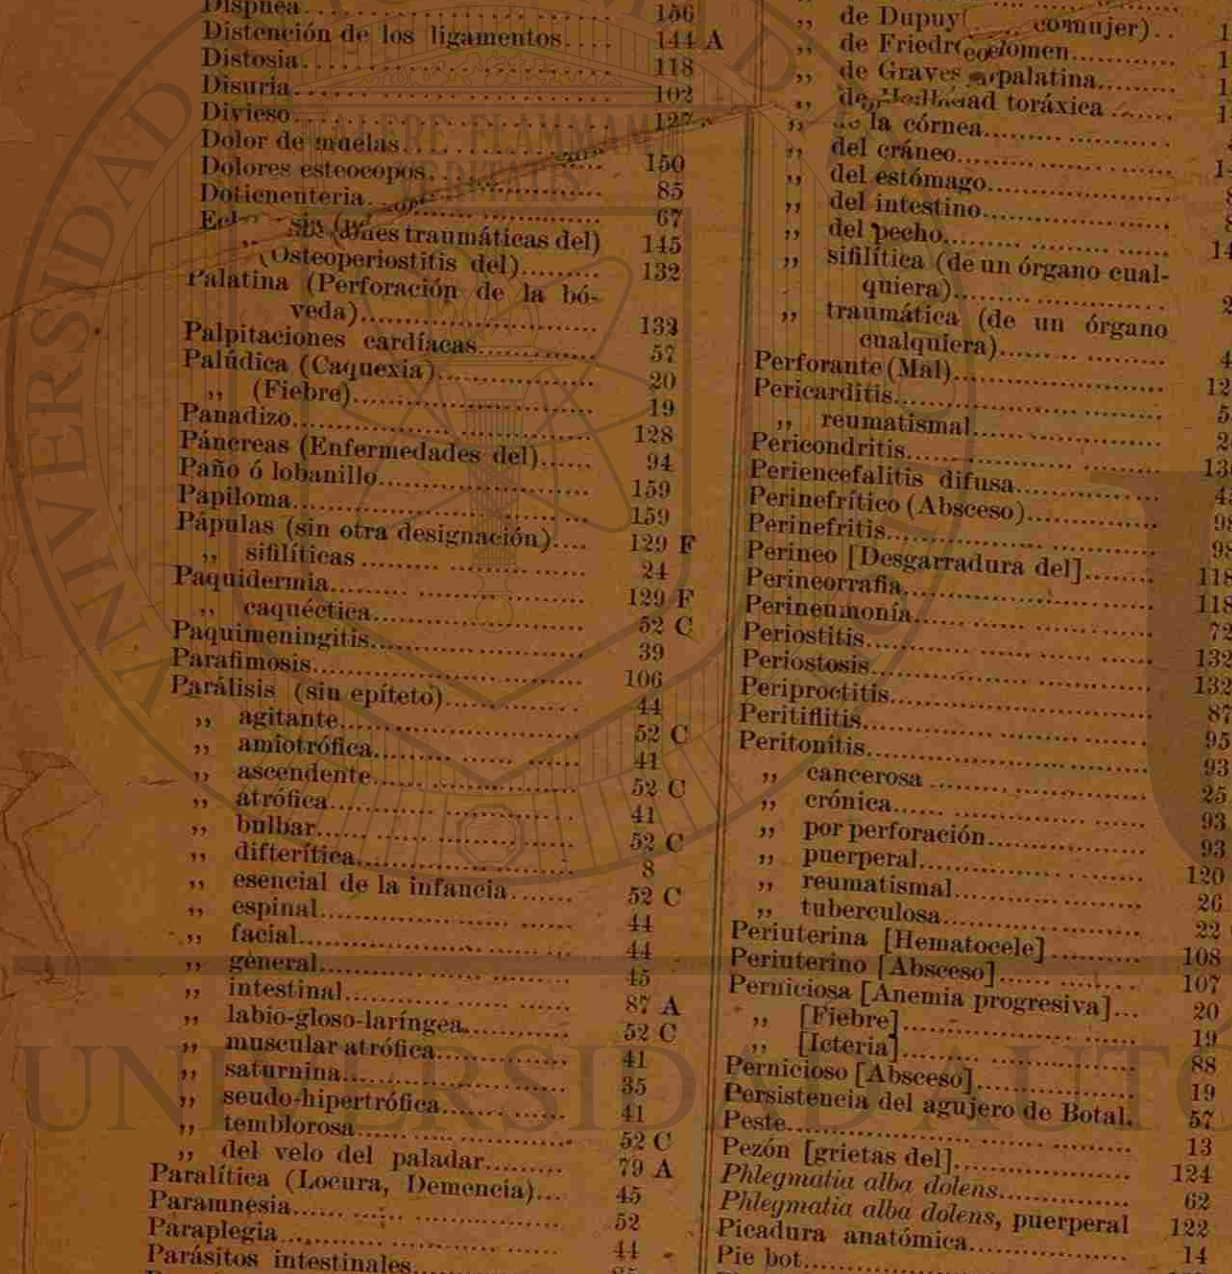 Dispnea.................... 156
Distención de los ligamentos.... 144 A
Distosia.................... 118
Disuria.................... 102
Divieso.................... 127
Dolor de muelas....................
Dolores esteocopos.................... 150
Dotienenteria.................... 85
67
traumáticas del) 145
(Osteoperiostitis del)........ 132
Palatina (Perforación de la bó-
veda).................... 132
Palpitaciones cardíacas............ 57
Palúdica (Caquexia).................... 20
,, (Fiebre).................... 19
Panadizo.................... 128
Páncreas (Enfermedades del)...... 94
Paño ó lobanillo.................... 159
Papiloma.................... 159
Pápulas (sin otra designación).... 129 F
,, sifilíticas.................... 24
Paquidermia.................... 129 F
,, caquéctica.................... 52 C
Paquimeningitis.................... 39
Parafimosis.................... 106
Parálisis (sin epíteto)............ 44
,, agitante.................... 52 C
,, amiotrófica.................... 41
,, ascendente.................... 52 C
,, atrófica.................... 41
,, bulbar.................... 52 C
,, difterítica.................... 8
,, esencial de la infancia...... 52 C
,, espinal.................... 44
,, facial.................... 44
,, general.................... 45
,, intestinal.................... 87 A
,, labio-gloso-laríngea............ 52 C
,, muscular atrófica............ 41
,, saturnina.................... 35
,, seudo-hipertrófica............ 41
,, temblorosa.................... 52 C
,, del velo del paladar......... 79 A
Paralítica (Locura, Demencia)... 45
Paramnesia.................... 52
Paraplegia.................... 44
Parásitos intestinales............
,, de Dupuy mujer)..
,, de
,, de Graves palatina.........
,, toráxica......
,, de la córnea............
,, del cráneo....................
,, del estómago....................
,, del intestino....................
,, del pecho....................
,, sifilítica (de un órgano cual-
quiera)....................
,, traumática (de un órgano
cualquiera)....................
Perforante (Mal)....................
Pericarditis....................
,, reumatismal....................
Pericondritis....................
Periencefalitis difusa............
Perinefrítico (Absceso)............
Perinefritis.................... 98
Perineo [Desgarradura del]....... 118
Perineorrafia.................... 118
Perineumonía.................... 72
Periostitis.................... 132
Periostosis.................... 132
Periproctitis.................... 87
Peritiflitis.................... 95
Peritonitis.................... 93
,, cancerosa.................... 25
,, crónica.................... 93
,, por perforación............ 93
,, puerperal.................... 120
,, reumatismal.................... 26
,, tuberculosa.................... 22
Periuterina [Hematocele]......... 108
Periuterino [Absceso]............ 107
Perniciosa [Anemia progresiva]... 20
,, [Fiebre].................... 19
,, [Icteria].................... 88
Pernicioso [Absceso]............ 19
Persistencia del agujero de Botal. 57
Peste.................... 13
Pezón [grietas del].................... 124
Phlegmatia alba dolens............ 62
Phlegmatia alba dolens, puerperal 122
Picadura anatómica............ 14
Pie bot....................
UNIVERSIDAD AUTO
ALERE FLAMMAM
VERITATIS